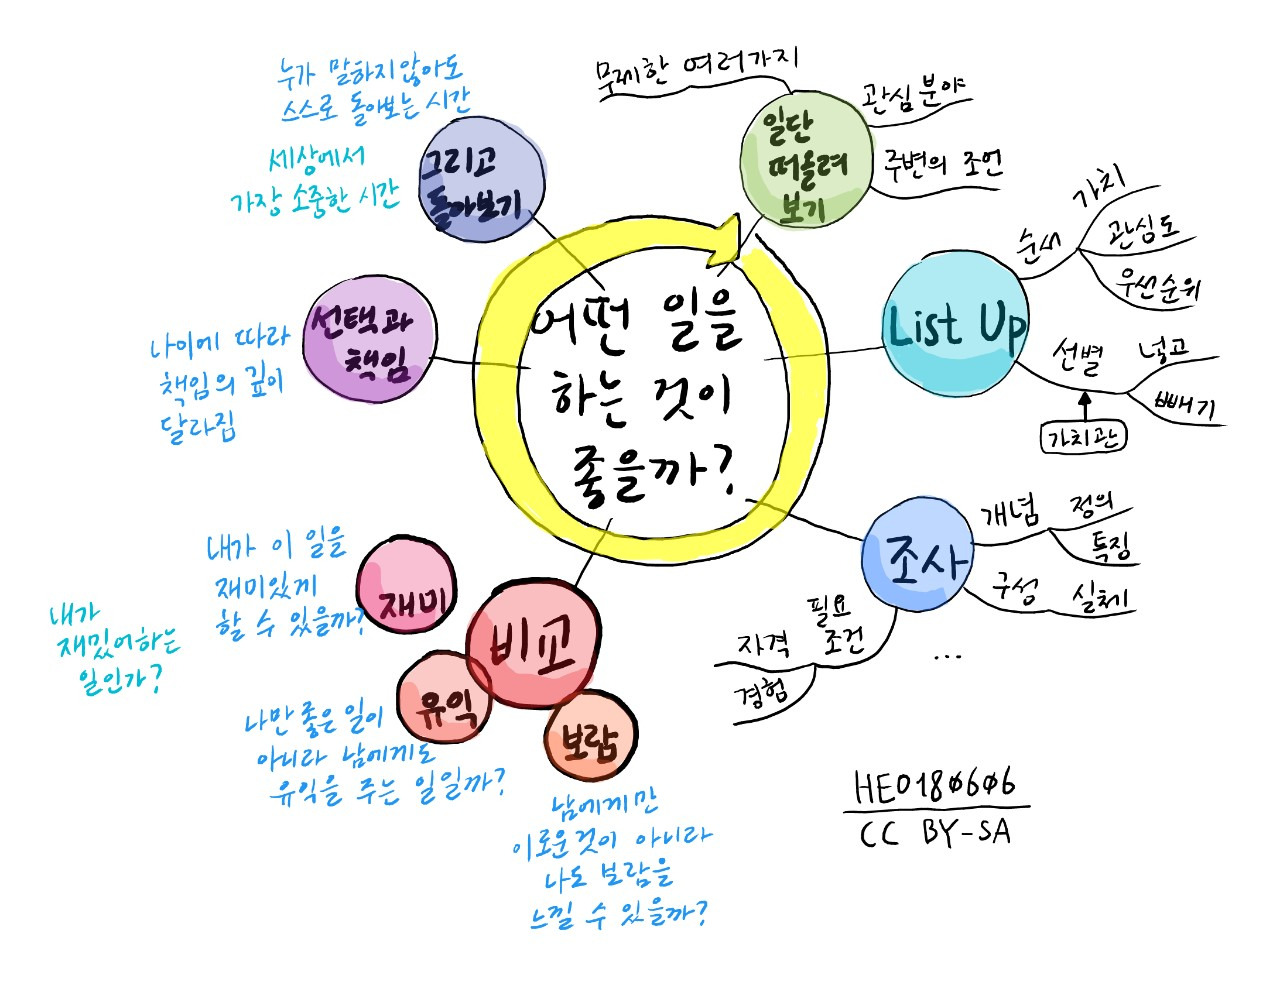 어떤 일을
하는 것이
좋을까?
일단
떠올려
보기
무제한 여러가지
관심분야
주변의 조언
List Up
순서
가치
관심도
우선순위
선별
넣고
빼기
가치관
조사
개념
정의
특징
구성
실체
필요
조건
자격
경험
...
비교
재미
내가 이 일을
재미있게
할 수 있을까?
내가
재밌어하는
일인가?
유익
나만 좋은 일이
아니라 남에게도
유익을 주는 일일까?
보람
남에게만
이로운것이 아니라
나도 보람을
느낄 수 있을까?
선택과
책임
나이에 따라
책임의 깊이
달라짐
그리고
돌아보기
누가 말하지않아도
스스로 돌아보는 시간
세상에서
가장 소중한 시간
HE0180606
CC BY-SA